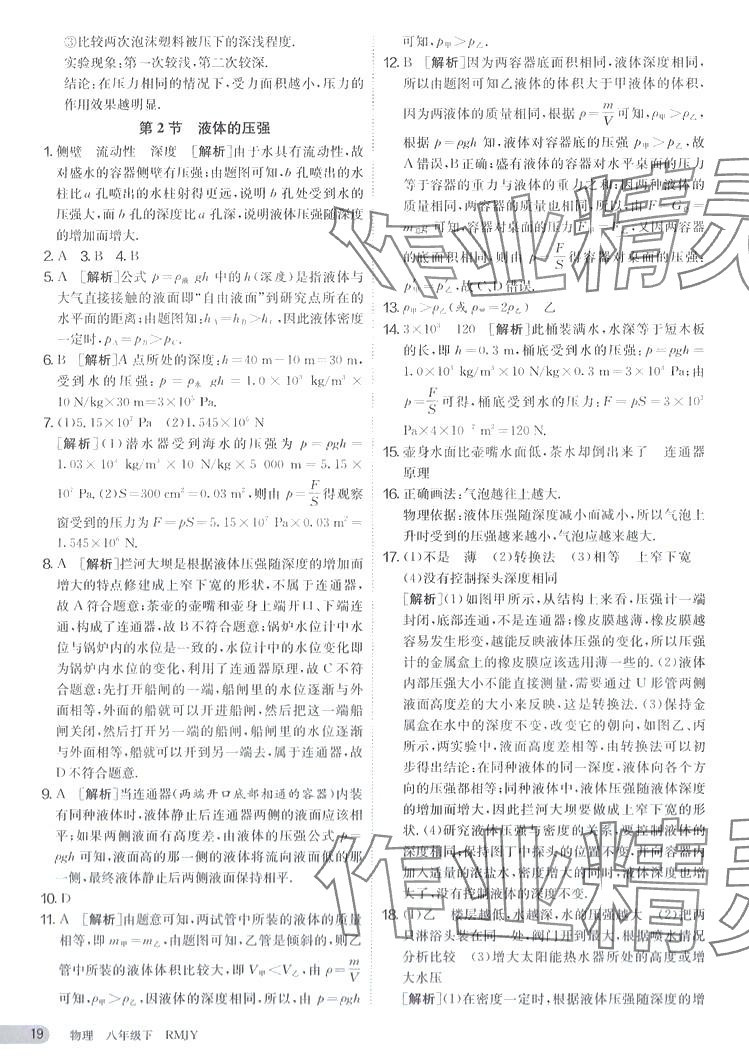 ③比较两次泡沫塑料被压下的深浅程度.
实验现象:第一次较浅,第二次较深.
结论:在压力相同的情况下,受力面积越小,压力的
作用效果越明显.
第 2 节　液体的压强
1. 侧壁　流动性　深度　[解析]由于水具有流动性,故
对盛水的容器侧壁有压强;由题图可知,b 孔喷出的水
柱比 a 孔喷出的水柱射得更远,说明 b 孔处受到水的
压强大,而 b 孔的深度比 a 孔深,说明液体压强随深度
的增加而增大.
2. A　3. B　4. B
5. A　[解析]公式 p=ρ液 gh 中的 h(深度)是指液体与
大气直接接触的液面即“自由液面”到研究点所在的
水平面的距离;由题图知:hA=hD>hC,因此液体密度
一定时,pA=pD>pC.
6. B　[解析]A 点所处的深度:h=40 m-10 m=30 m,
受到水的压强:p=ρ水 gh=1.0×10³ kg/m³×
10 N/kg×30 m=3×10⁵ Pa.
7. (1)5.15×10⁷ Pa　(2)1.545×10⁶ N
[解析](1)潜水器受到海水的压强为 p=ρgh=
1.03×10³ kg/m³×10 N/kg×5 000 m=5.15×
10⁷ Pa.(2)S=300 cm²=0.03 m²,则由 p=F/S 得观察
窗受到的压力为 F=pS=5.15×10⁷ Pa×0.03 m²=
1.545×10⁶ N.
8. A　[解析]拦河大坝是根据液体压强随深度的增加而
增大的特点修建成上窄下宽的形状,不属于连通器,
故 A 符合题意;茶壶的壶嘴和壶身上端开口、下端连
通,构成了连通器,故 B 不符合题意;锅炉水位计中水
位与锅炉内的水位是一致的,水位计中的水位变化即
为锅炉内水位的变化,利用了连通器原理,故 C 不符
合题意;先打开船闸的一端,船闸里的水位逐渐与外
面相等,外面的船就可以开进船闸,然后把这一端船
闸关闭,然后打开船闸的另一端,船闸里的水位逐渐
与外面相等,船就可以开到另一端去,属于连通器,故
D 不符合题意.
9. A　[解析]当连通器(两端开口底部相通的容器)内装
有同种液体时,液体静止后连通器两侧的液面应该相
平;如果两侧液面有高度差,由液体的压强公式 p=
ρgh 可知,液面高的那一侧的液体将流向液面低的那
一侧,最终液体静止后两侧液面保持相平.
10. D
11. A　[解析]由题意可知,两试管中所装的液体的质量
相等,即 m甲=m乙,由题图可知,乙管是倾斜的,则乙
管中所装的液体体积比较大,即 V甲<V乙,由 ρ=m/V
可知,ρ甲>ρ乙,液面相平,则 h甲=h乙,由 p=ρgh
可知,p甲>p乙.
12. B　[解析]因为两容器底面积相同,液体深度相同,
所以由题图可知乙液体的体积大于甲液体的体积,
因为两液体的质量相同,根据 ρ=m/V 可知,ρ甲>ρ乙,
根据 p=ρgh 知,液体对容器底的压强 p甲>p乙,故
A 错误,B 正确;盛有液体的容器对水平桌面的压力
等于容器的重力与液体的重力之和;因两种液体的
质量相同,两容器的质量也相同,所以,由 F=G总=
m总g 可知,容器对桌面的压力 F甲=F乙,又因两容器
的底面积相同,则由 p=F/S 得容器对桌面的压强:
p甲=p乙,故 C、D 错误.
13. p甲>p乙(或 p甲=2p乙)　乙
14. 3×10³　120　[解析]此桶装满水,水深等于短木板
的长,即 h=0.3 m,桶底受到水的压强:p=ρgh=
1.0×10³ kg/m³×10 N/kg×0.3 m=3×10³ Pa;由
p=F/S 可得,桶底受到水的压力:F=pS=3×10³
Pa×4×10⁻² m²=120 N.
15. 壶身水面比壶嘴水面低,茶水却倒出来了　连通器
原理
16. 正确画法:气泡越往上越大.
物理依据:液体压强随深度减小而减小,所以气泡上
升时受到的压强越来越小,气泡应越来越大.
17. (1)不是　薄　(2)转换法　(3)相等　上窄下宽
(4)没有控制探头深度相同
[解析](1)如图甲所示,从结构上来看,压强计一端
封闭,底部连通,不是连通器;橡皮膜越薄,橡皮膜越
容易发生形变,越能反映液体压强的变化,所以压强
计的金属盒上的橡皮膜应该选用薄一些的.(2)液体
内部压强大小不能直接测量,需要通过 U 形管两侧
液面高度差的大小来反映,这是转换法.(3)保持金
属盒在水中的深度不变,改变它的朝向,如图乙、丙
所示,两实验中,液面高度差相等,所以压强相等,初
步得出结论:在同种液体的同一深度,液体向各个方
向的压强都相等;同种液体中,液体压强随液体深度
的增加而增大,因此拦河大坝要做成上窄下宽的形
状.(4)研究液体压强与密度的关系,要控制液体的
深度相同,保持图丁中探头的位置不变,向容器内加
入适量的浓盐水,密度增大的同时,液体的深度也增
大了,没有控制液体的深度不变.
18. (1)乙　楼层越低,水越深,水的压强越大　(2)把两
只淋浴头装在同一处,阀门开到最大,根据喷水情况
分析比较　(3)增大太阳能热水器所处的高度或增
大水压
[解析](1)在密度一定时,根据液体压强随深度的增
19　物理　八年级下　RMJY
作业精灵
作业精灵